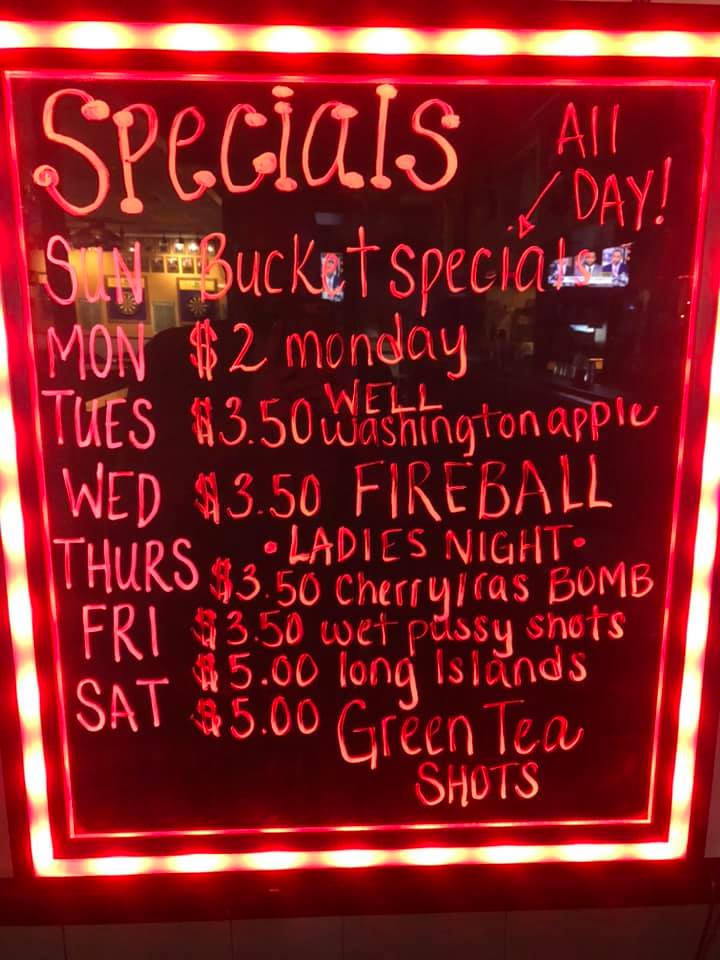 Specials
All
DAY!
SUN Bucket specials
MON $2 monday
WELL
TUES $3.50 washington apple
WED $3.50 FIREBALL
THURS • LADIES NIGHT •
$3.50 cherry/ras BOMB
FRI $3.50 wet pussy shots
$5.00 long Islands
SAT $5.00 Green Tea
SHOTS